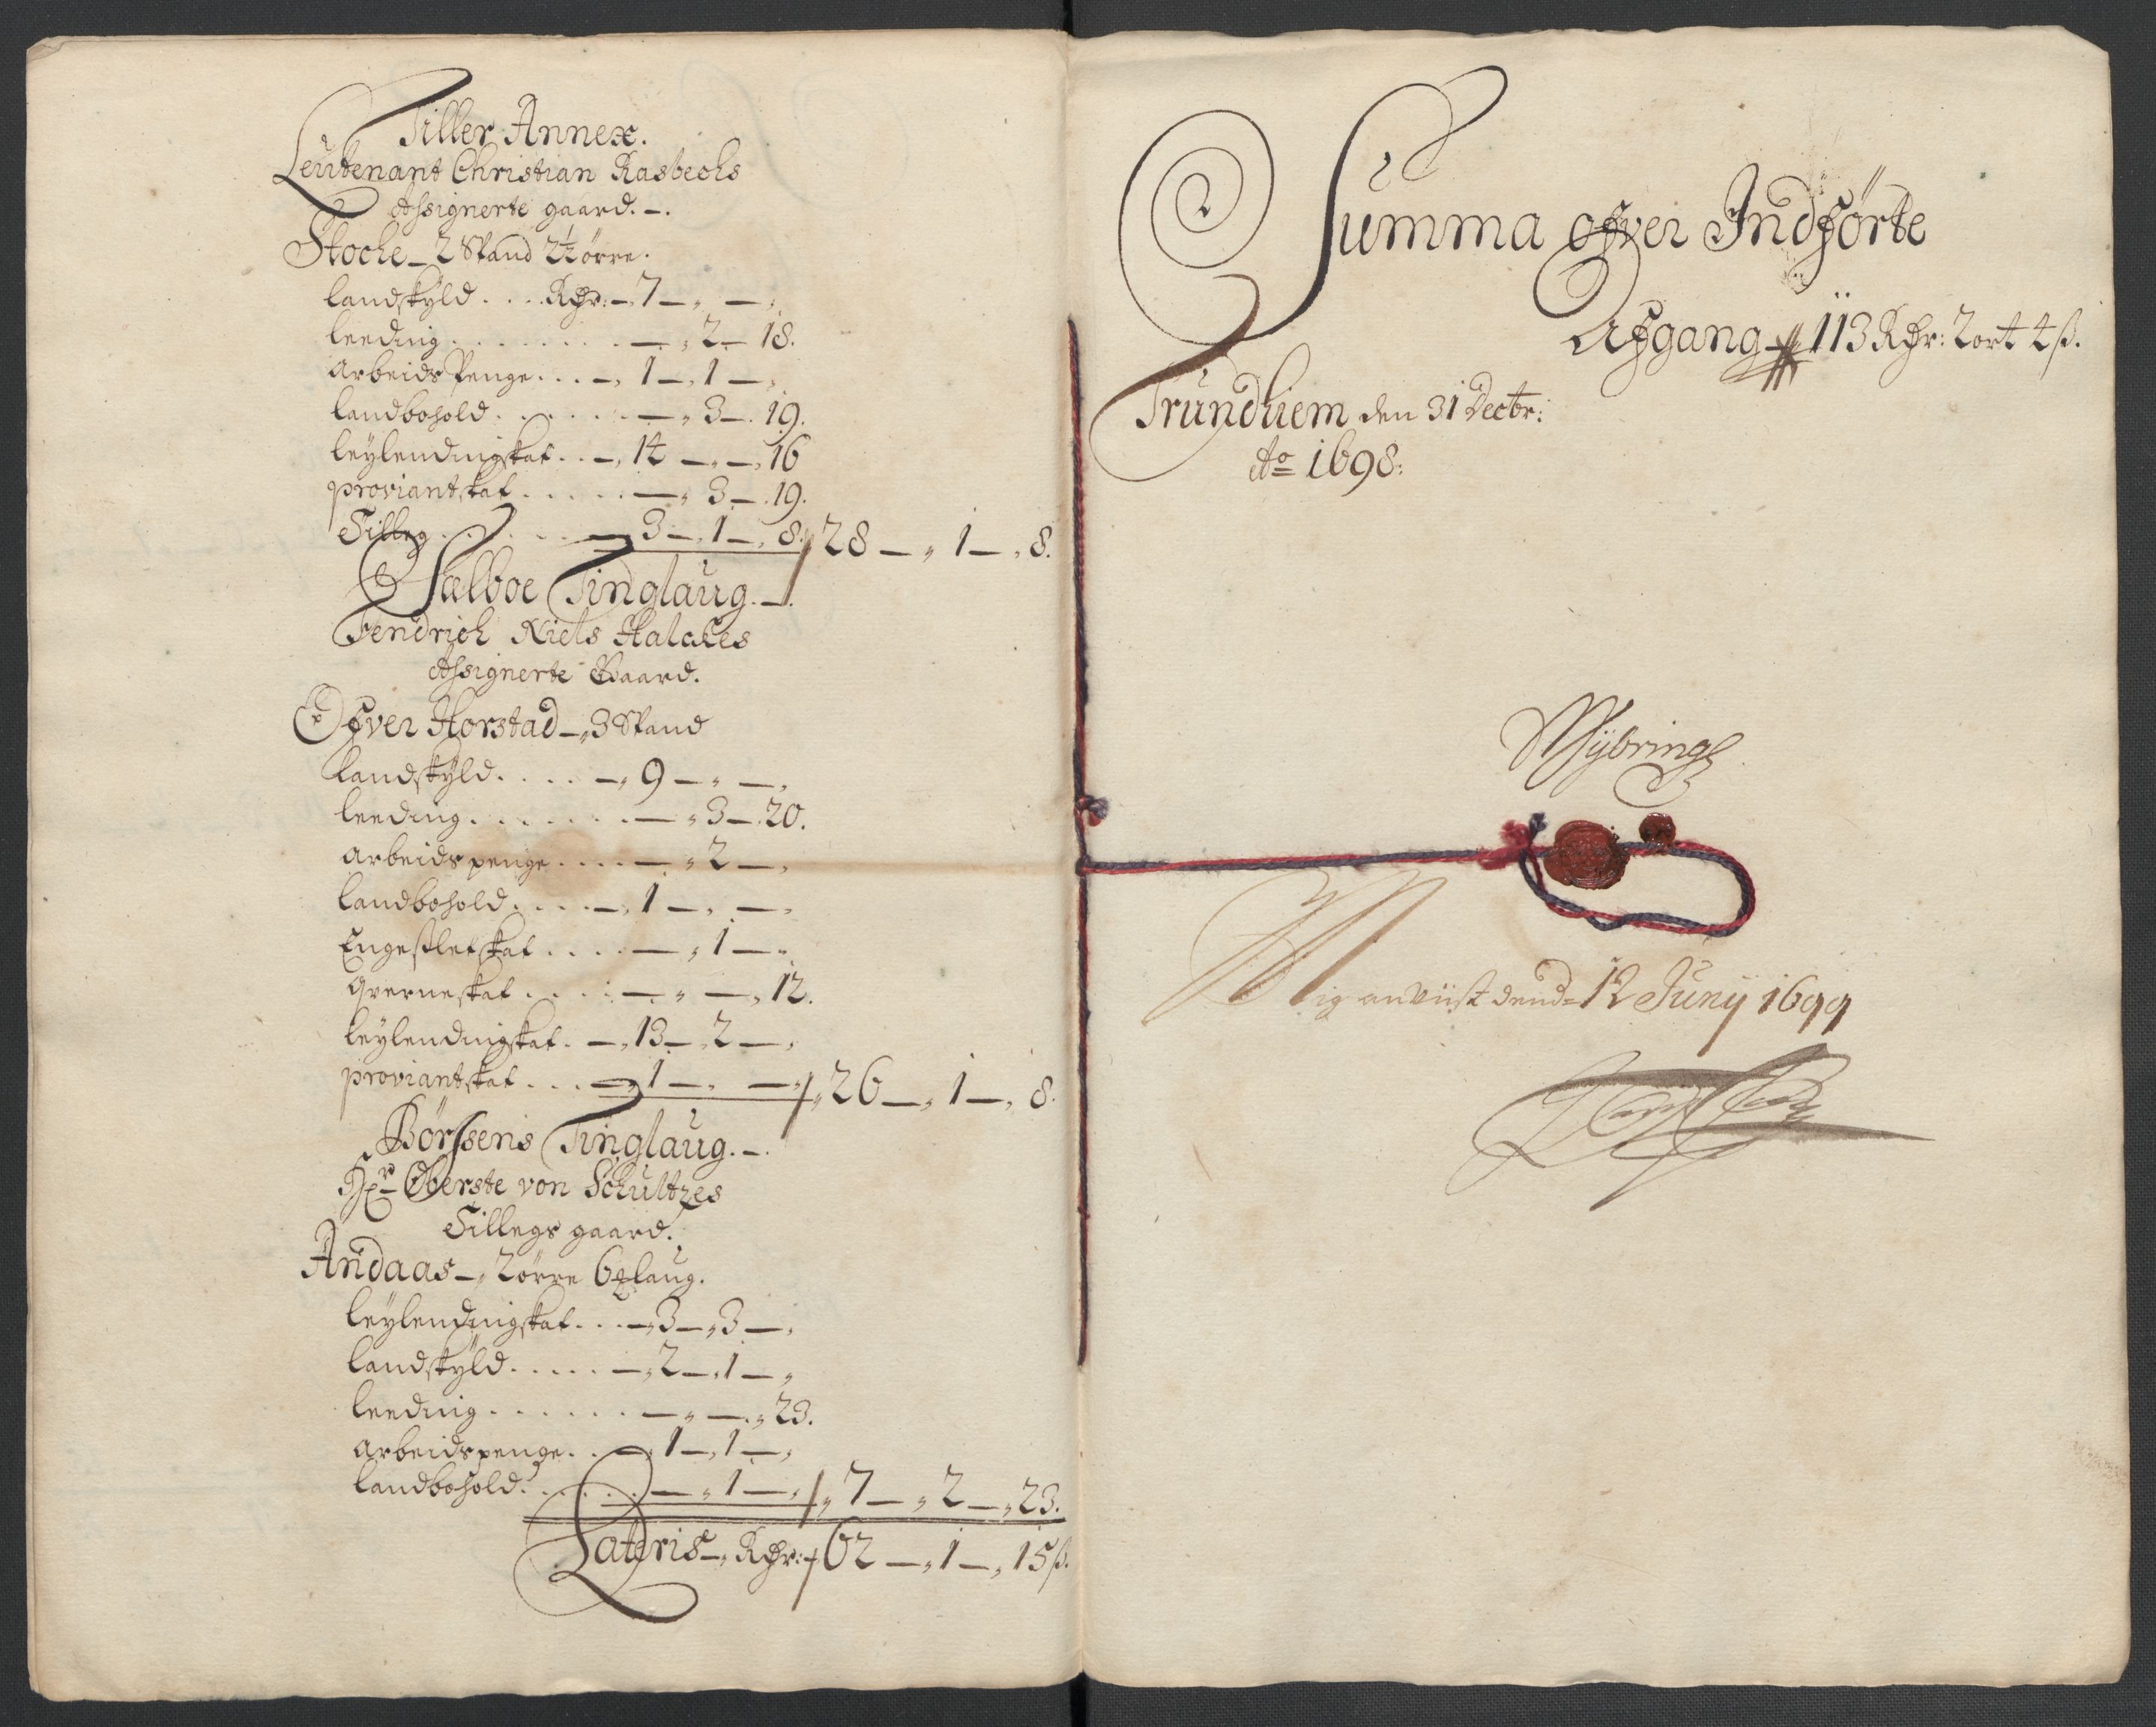 Tiller Annex.
Leutenant Christian Rasbechs
Assignerte gaard. -.
Stoche - 2 Spand 2½ ørre.
landskyld . . . Rdr: - 7 - „ - „
leeding . . . . . . . . - „ 2 - 18.
arbeids Penge . . . - „ 1 - „ 1 - „
landbohold . . . . . . - „ 3 - . 19.
leylendingskat . . - „ 14 - „ - „ 16
proviantskat . . . . . - „ 3 - . 19.
Tilleg . . . . . . - 3 - „ 1 - „ 8. 28 - „ 1 - „ 8.
Sælboe Tinglaug. -.
Fendrich Niels Halches
Assignerte Gaard.
Øfver Horstad - „ 3 Spand
landskyld . . . . - „ 9 - „ - „
leeding . . . . . . . - „ 3 - . 20.
arbeidspenge . . . . - „ 2 - „
landbohold . . . . - „ 1 - „ - „
Engesletskat . . . . - „ 1 - „
qverneskat . . . . - „ - „ 12.
leylendingskat . - „ 13 - „ 2 - „
proviantskat . . . - „ 1 - „ - „ 26 - „ 1 - „ 8.
Børssens Tinglaug. -.
Hr Oberste von Schultzes
Tillegs gaard.
Andaas - „ 2 ørre 6 Mlaug.
leylendingskat . . . - „ 3 - „ 3 - „
landskyld . . . . . - „ 2 - „ 1 - „
leeding . . . . . . - „ - „ 23.
arbeidspenge . . - „ 1 - „ 1 - „
landbohold . . . . . - „ 1 - „ 7 - „ 2 - „ 23.
Lateris - „ Rdr: 62 - „ 1 - „ 15 ß.
Summa ofver Indførte
Afgang - „ 113 Rdr: 2 ort 4 ß.
Trundhiem den 31 Decbr:
Ao 1698:
Mig anviist dend 12 Juny 1699